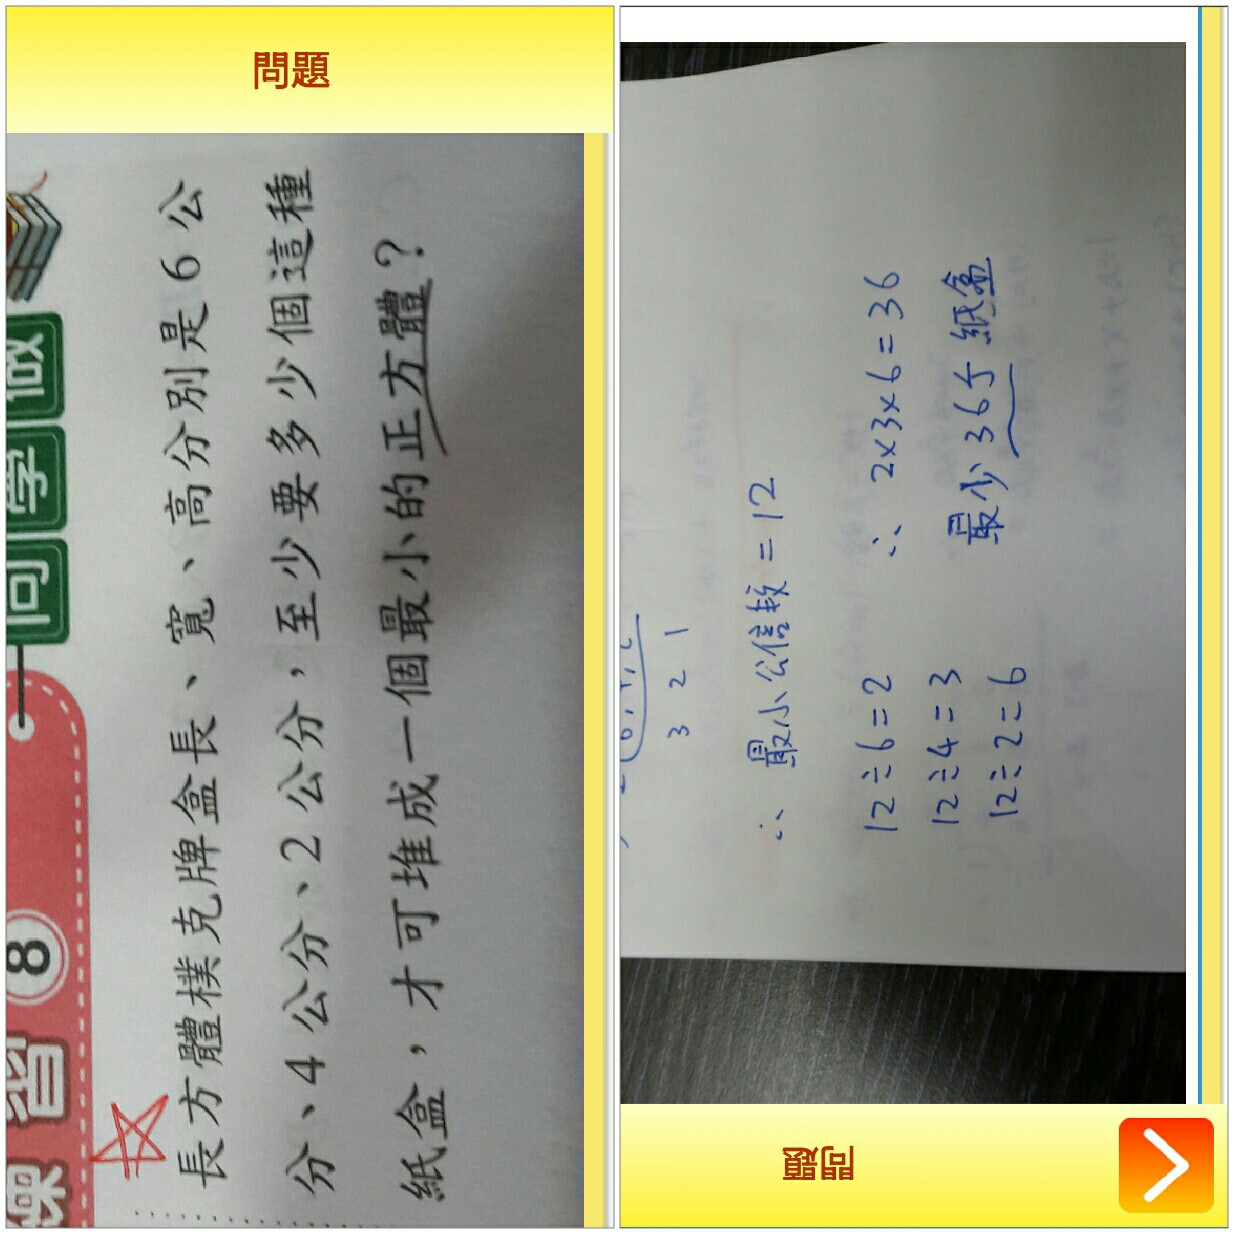 問題
練習 8 同學做
長方體樸克牌盒長、寬、高分別是6公
分、4公分、2公分，至少要多少個這種
紙盒，才可堆成一個最小的正方體？
3 2 1
∴ 最小公倍數=12
12÷6=2 ∴ 2×3×6=36
12÷4=3 最少36个紙盒
12÷2=6
問題